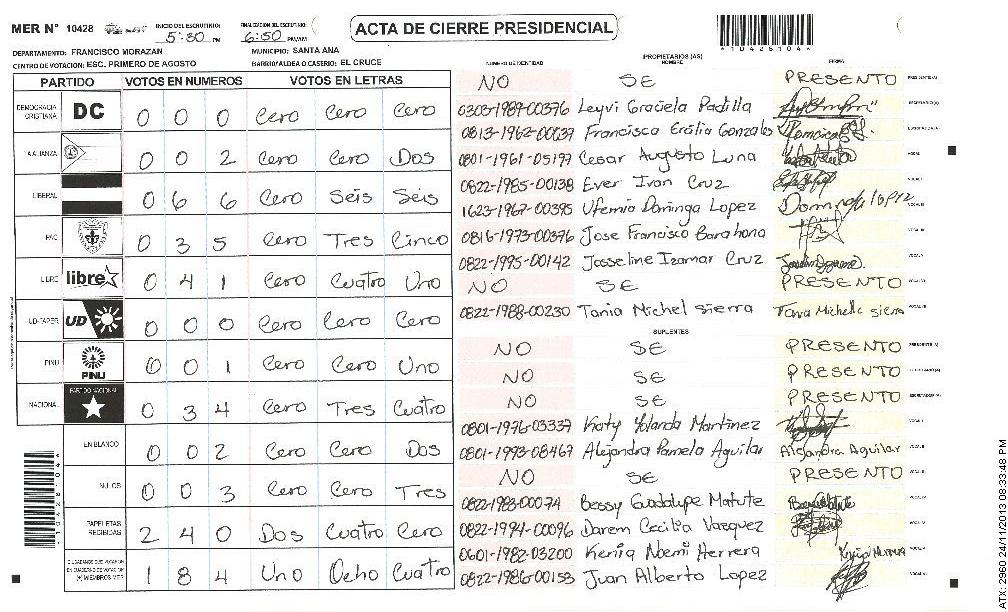 MER N° 10428
INICIO DEL ESCRUTINIO: 5:30 PM
FINALIZACION DEL ESCRUTINIO: 6:50 PM/AM
ACTA DE CIERRE PRESIDENCIAL
*10428104*
DEPARTAMENTO: FRANCISCO MORAZAN
MUNICIPIO: SANTA ANA
CENTRO DE VOTACION: ESC. PRIMERO DE AGOSTO
BARRIO/ALDEA O CASERIO: EL CRUCE
PARTIDO VOTOS EN NUMEROS VOTOS EN LETRAS
DEMOCRACIA CRISTIANA DC 0 0 0 Cero Cero Cero
LA ALIANZA 0 0 2 Cero Cero Dos
LIBERAL 0 6 6 Cero Seis Seis
PAC 0 3 5 Cero Tres Cinco
LIBRE libre 0 4 1 Cero Cuatro Uno
UD-FAPER UD 0 0 0 Cero Cero Cero
PINU PINU 0 0 1 Cero Cero Uno
NACIONAL PARTIDO NACIONAL 0 3 4 Cero Tres Cuatro
EN BLANCO 0 0 2 Cero Cero Dos
NULOS 0 0 3 Cero Cero Tres
PAPELETAS RECIBIDAS 2 4 0 Dos Cuatro Cero
CIUDADANOS QUE VOTARON EN CUADERNO DE VOTACION (+) MIEMBROS MER 1 8 4 Uno Ocho Cuatro
NUMERO DE IDENTIDAD PROPIETARIOS (AS) NOMBRE FIRMA
NO SE PRESENTO PRESIDENTE (A)
0303-1989-00376 Leyvi Graciela Padilla SECRETARIO (A)
0813-1962-00037 Francisca Ersilia Gonzales ESCRUTADOR (A)
0801-1961-05197 Cesar Augusto Luna VOCAL I
0822-1985-00138 Ever Ivan Cruz VOCAL II
1623-1967-00395 Ufemia Dominga Lopez Dominga lopez VOCAL III
0816-1973-00376 Jose Francisco Barahona VOCAL IV
0822-1995-00142 Josseline Izamar Cruz VOCAL V
NO SE PRESENTO VOCAL VI
0822-1988-00230 Tania Michel Sierra Tania Michelle Sierra VOCAL VII
SUPLENTES
NO SE PRESENTO PRESIDENTE (A)
NO SE PRESENTO SECRETARIO (A)
NO SE PRESENTO ESCRUTADOR (A)
0801-1976-03337 Katy Yolanda Martinez VOCAL I
0801-1993-08467 Alejandra Pamela Aguilar Alejandra Aguilar VOCAL II
NO SE PRESENTO VOCAL III
0822-1983-00074 Bessy Guadalupe Matute VOCAL IV
0822-1994-00096 Darem Cecilia Vasquez VOCAL V
0601-1982-03200 Kenia Noemi Herrera VOCAL VI
0822-1986-00153 Juan Alberto Lopez VOCAL VII
*10428104*
ATX 2960 24/11/2013 08:33:48 PM